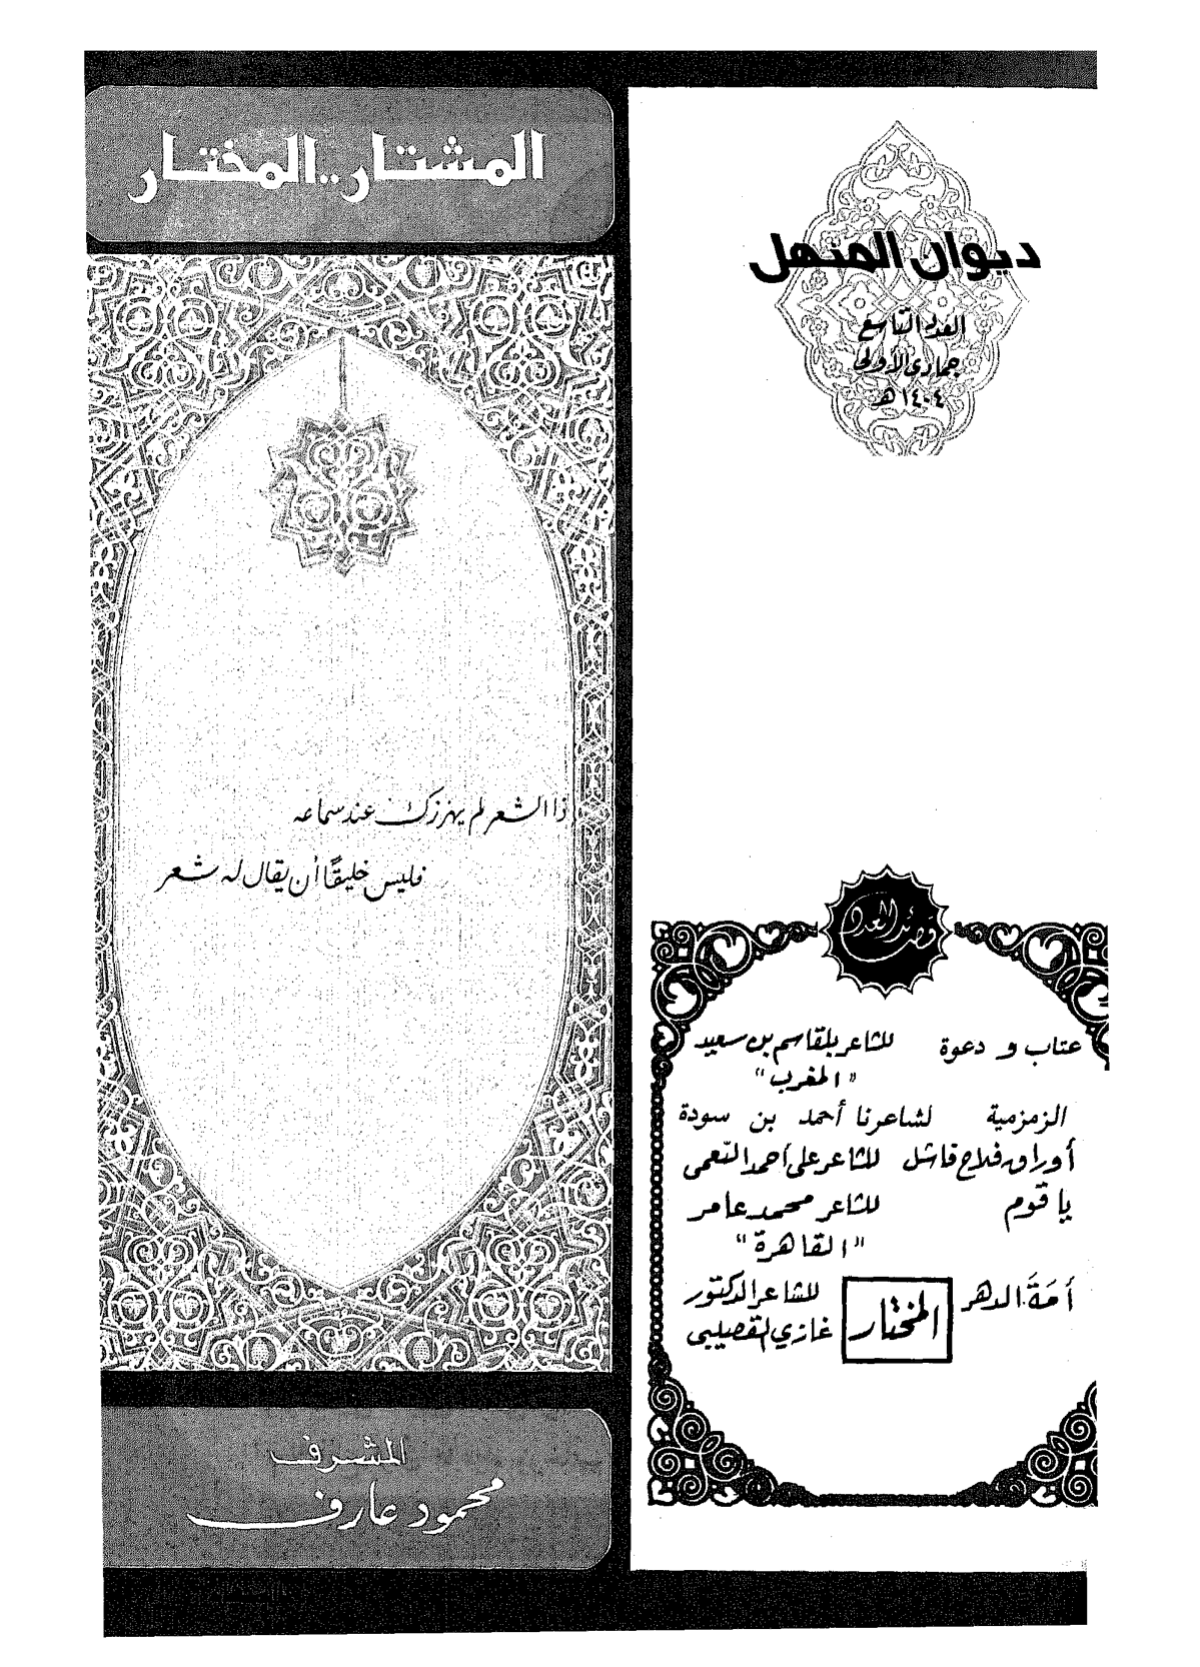 ديوان المنهل
العدد التاسع
جمادى الأولى
١٤٠٤ هـ
المشتار..المختار
ذا الشعر لم يهززك عند سماعه
فليس خليقًا أن يقال له شعر
قصائد العدد
عتاب و دعوة للشاعر بلقاسم بن سعيد
"المغرب"
الزمزمية لشاعرنا أحمد بن سودة
أوراق فلاح فاشل للشاعر على أحمد النعمى
يا قوم للشاعر محمد عامر
"القاهرة"
أمة الدهر المختار للشاعر الدكتور
غازي القصيبى
المشرف
محمود عارف